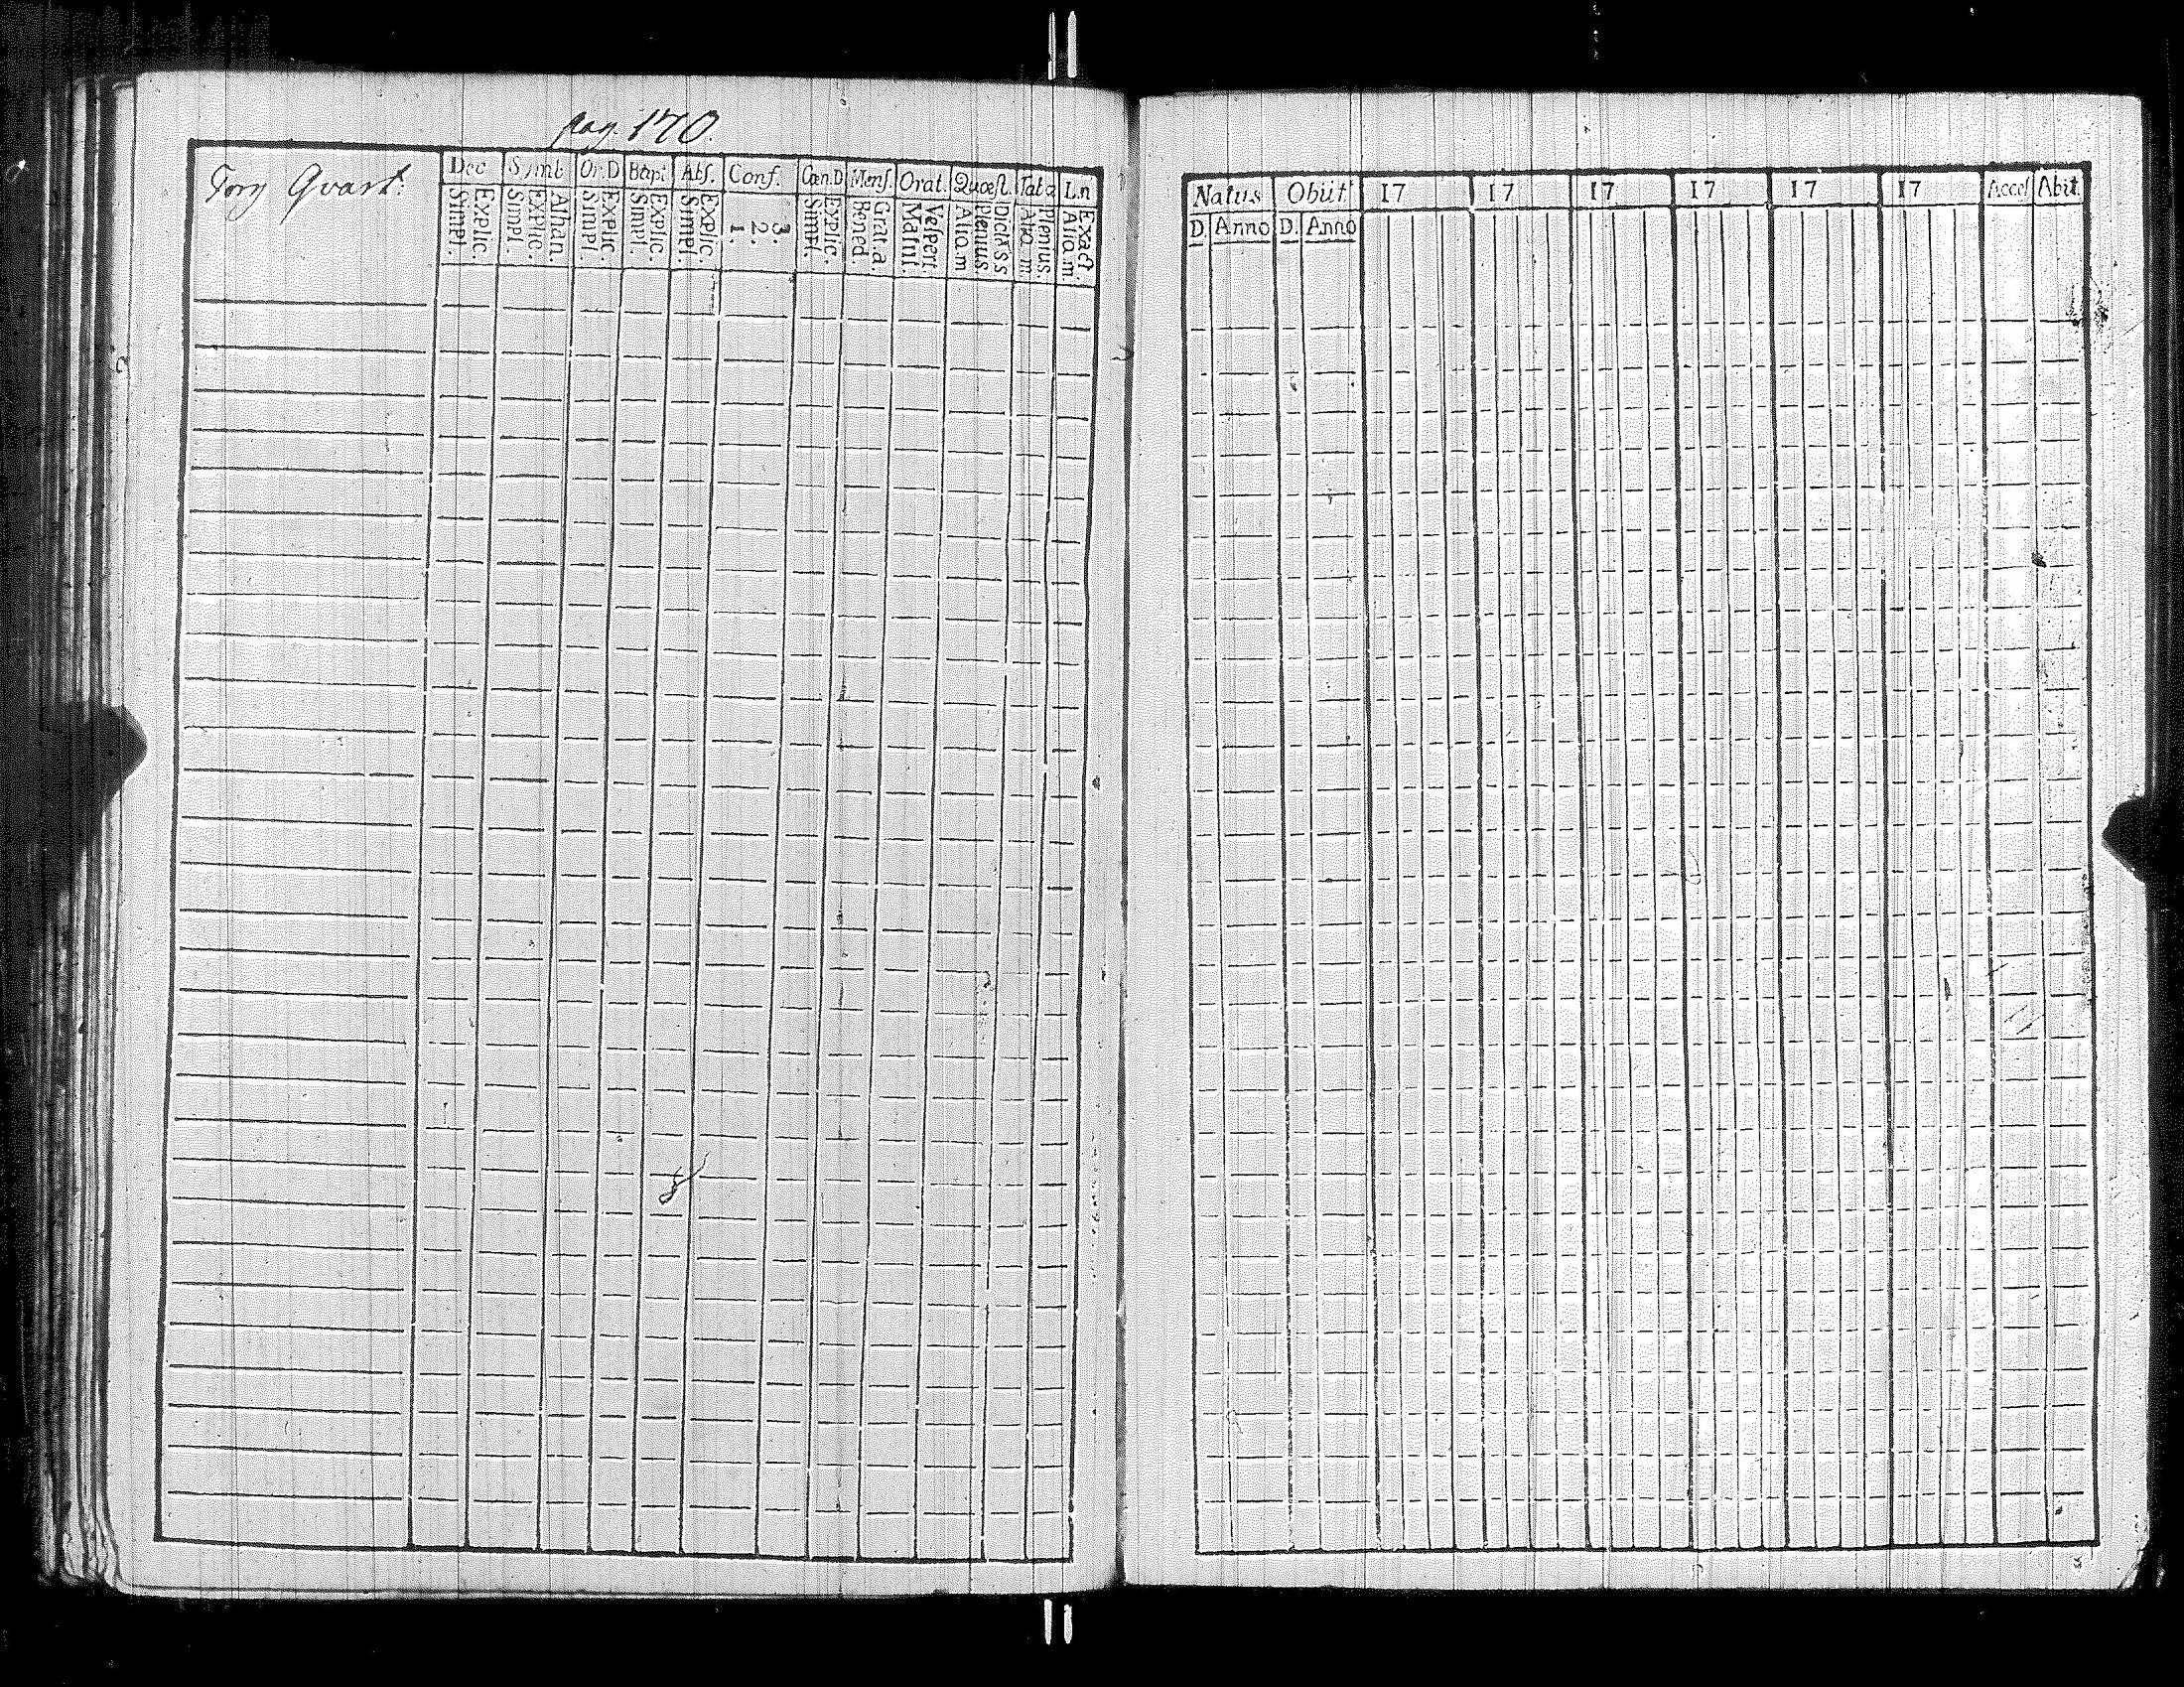 pag. 170.
Torg Qvart.
Dec Symb Or.D Bapt Abſ. Conf. Cœn.D Menſ. Orat. Quæſt. Tab.æ Ln
Explic. Simpl.
Athan. Explic. Simpl.
Explic. Simpl.
Explic. Simpl.
Explic. Simpl.
3. 2. 1.
Explic. Simpl.
Grat.a. Bened
Veſpert. Matut.
Dict.ss Plenius Alio.m
Plenius. Alio.m.
Exact. Alia.m.
Natus Obiit 17 17 17 17 17 17 Acceſ Abit
D. Anno D. Anno